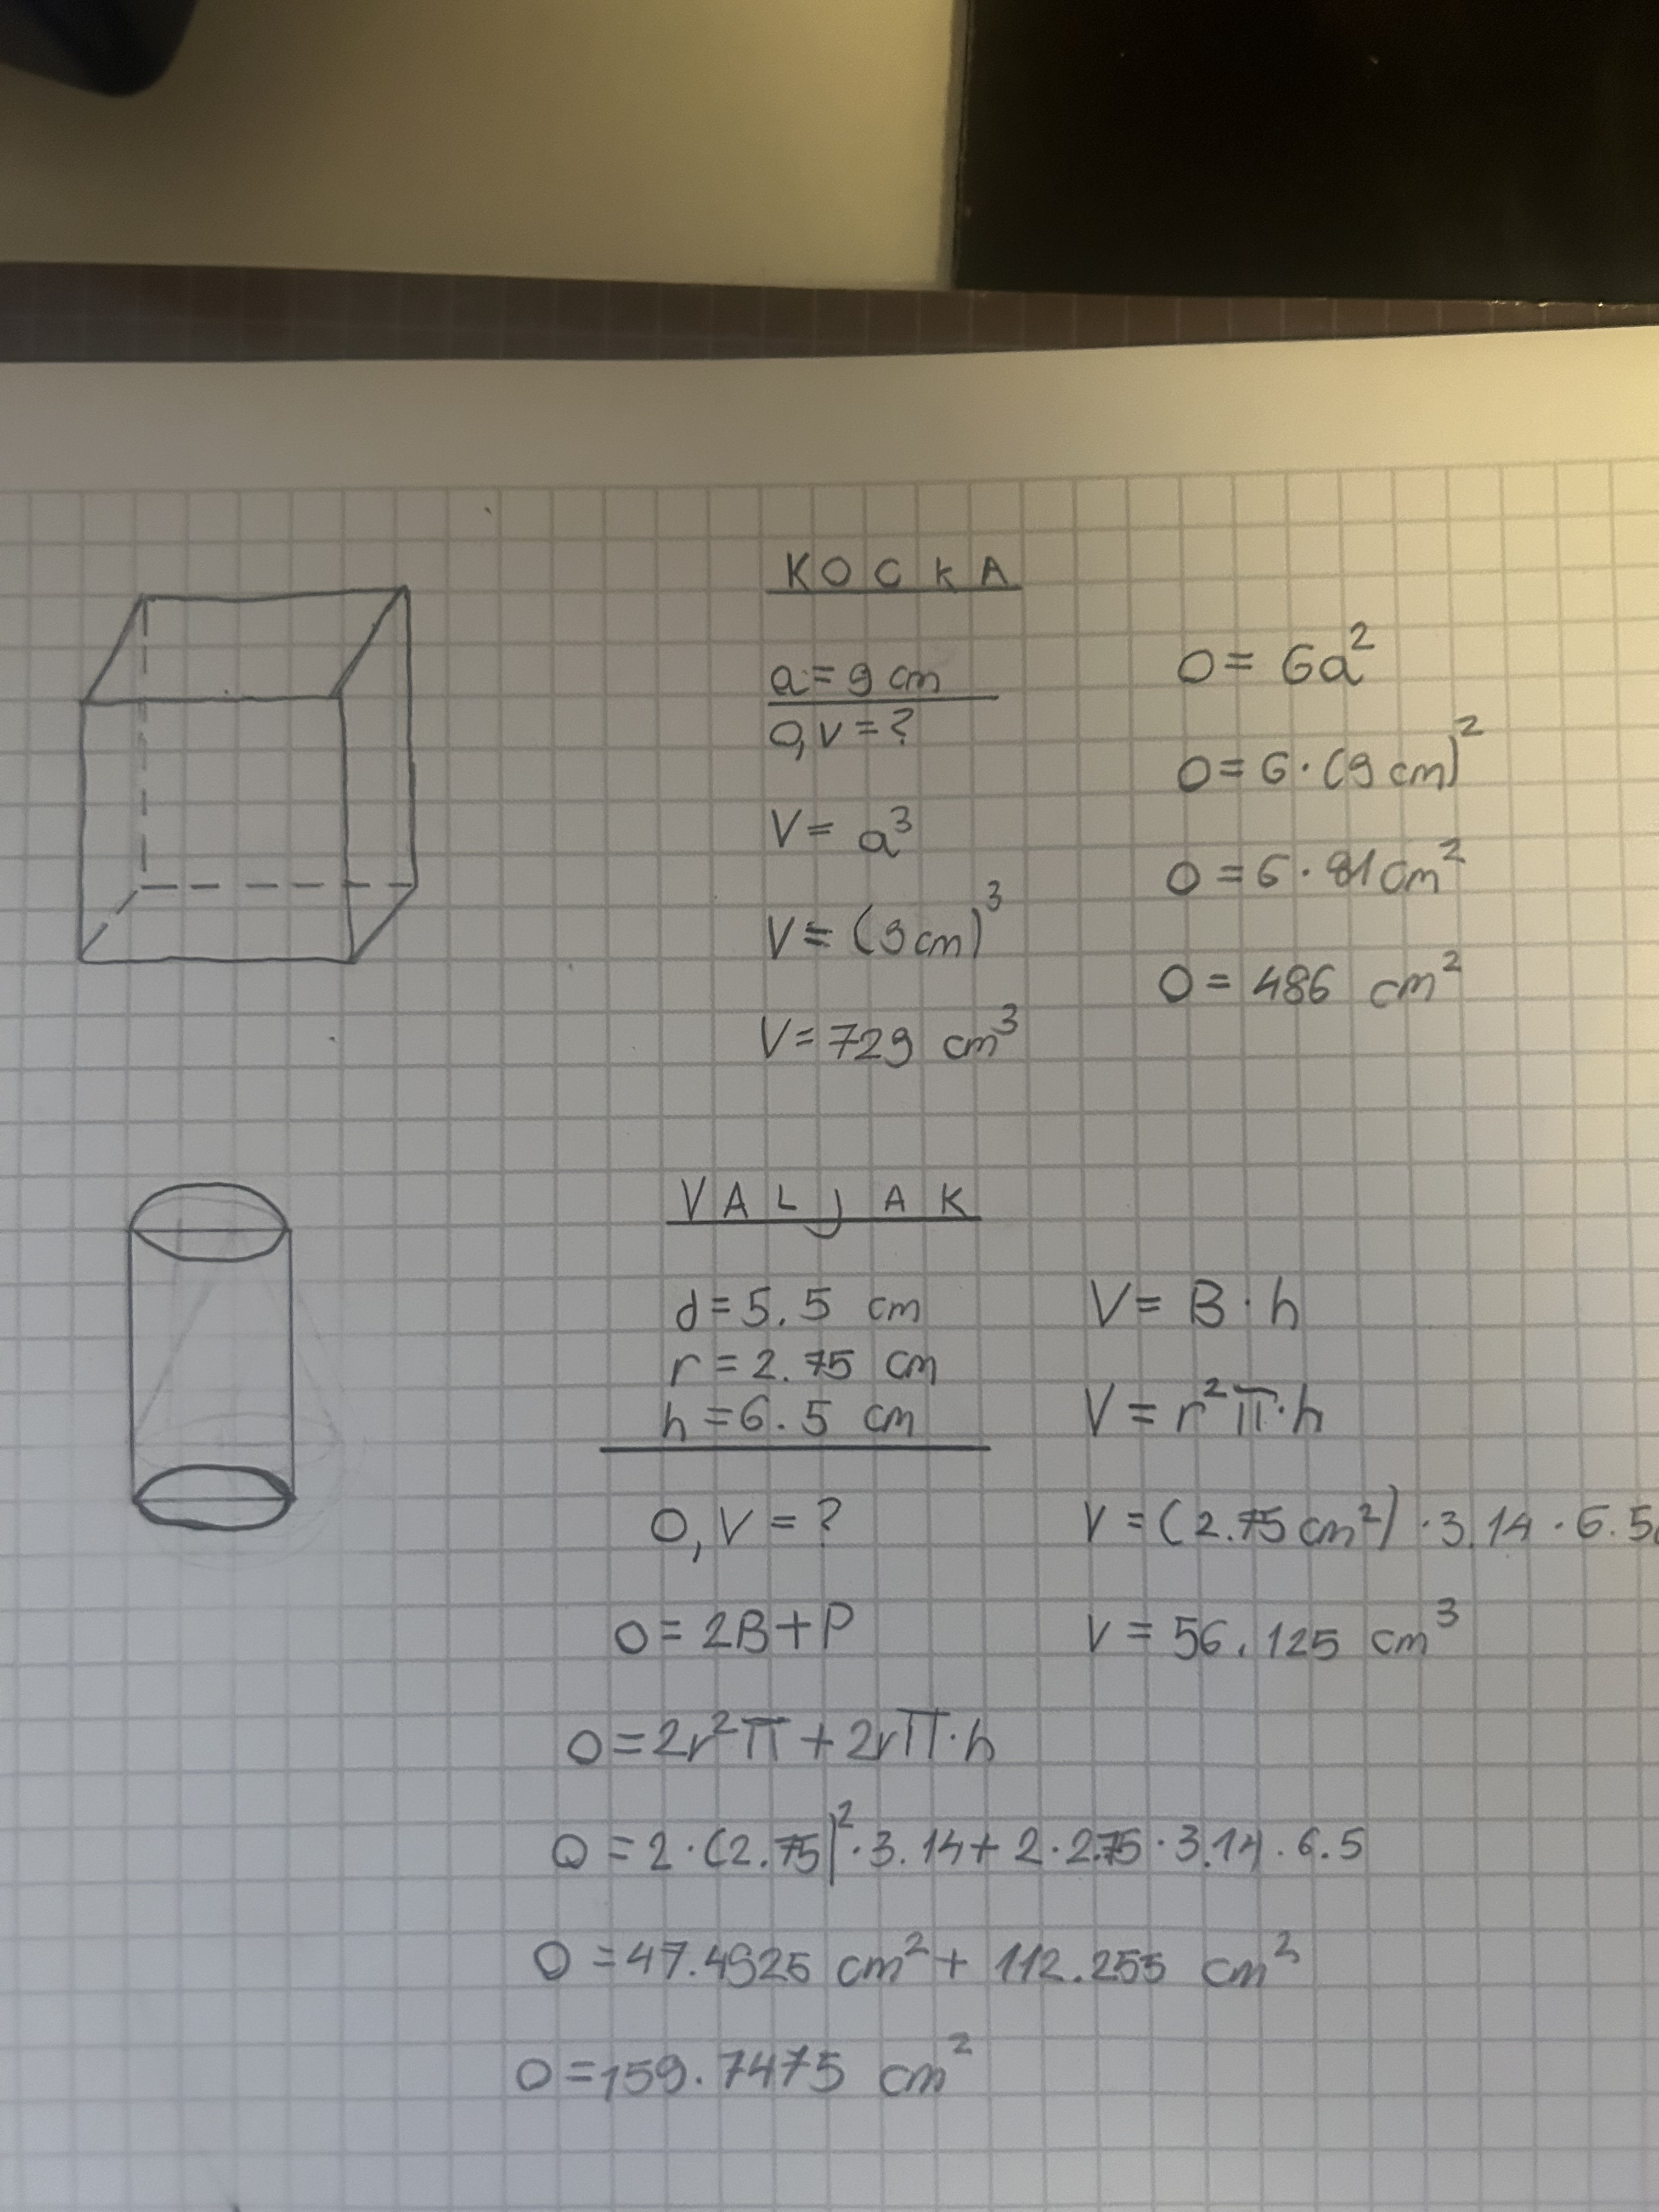 KOCKA
a = 9 cm
O, V = ?
V = a³
V = (9 cm)³
V = 729 cm³
O = 6a²
O = 6 · (9 cm)²
O = 6 · 81 cm²
O = 486 cm²
VALJAK
d = 5.5 cm
r = 2.75 cm
h = 6.5 cm
O, V = ?
O = 2B + P
V = B · h
V = r²π · h
V = (2.75 cm²) · 3.14 · 6.5
V = 56.125 cm³
O = 2r²π + 2rπ · h
O = 2 · (2.75)² · 3.14 + 2 · 2.75 · 3.14 · 6.5
O = 47.4925 cm² + 112.255 cm²
O = 159.7475 cm²